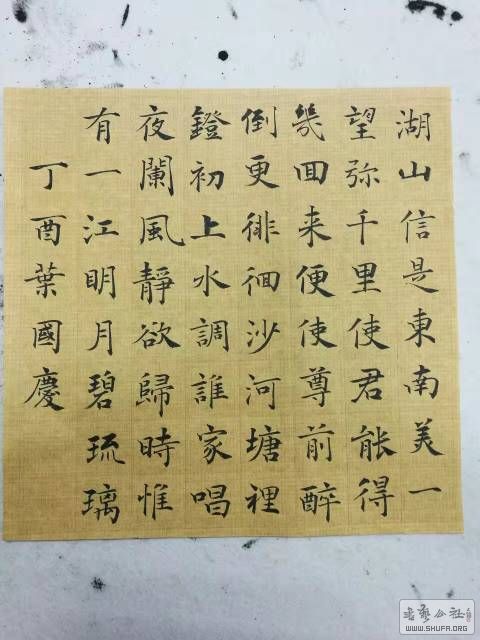 湖山信是東南美一
望弥千里使君能得
幾回来便使尊前醉
倒更徘徊沙河塘裡
鐙初上水調誰家唱
夜闌風靜欲歸時惟
有一江明月碧琉璃
丁酉葉國慶
书艺公社
WWW.SHUFA.ORG